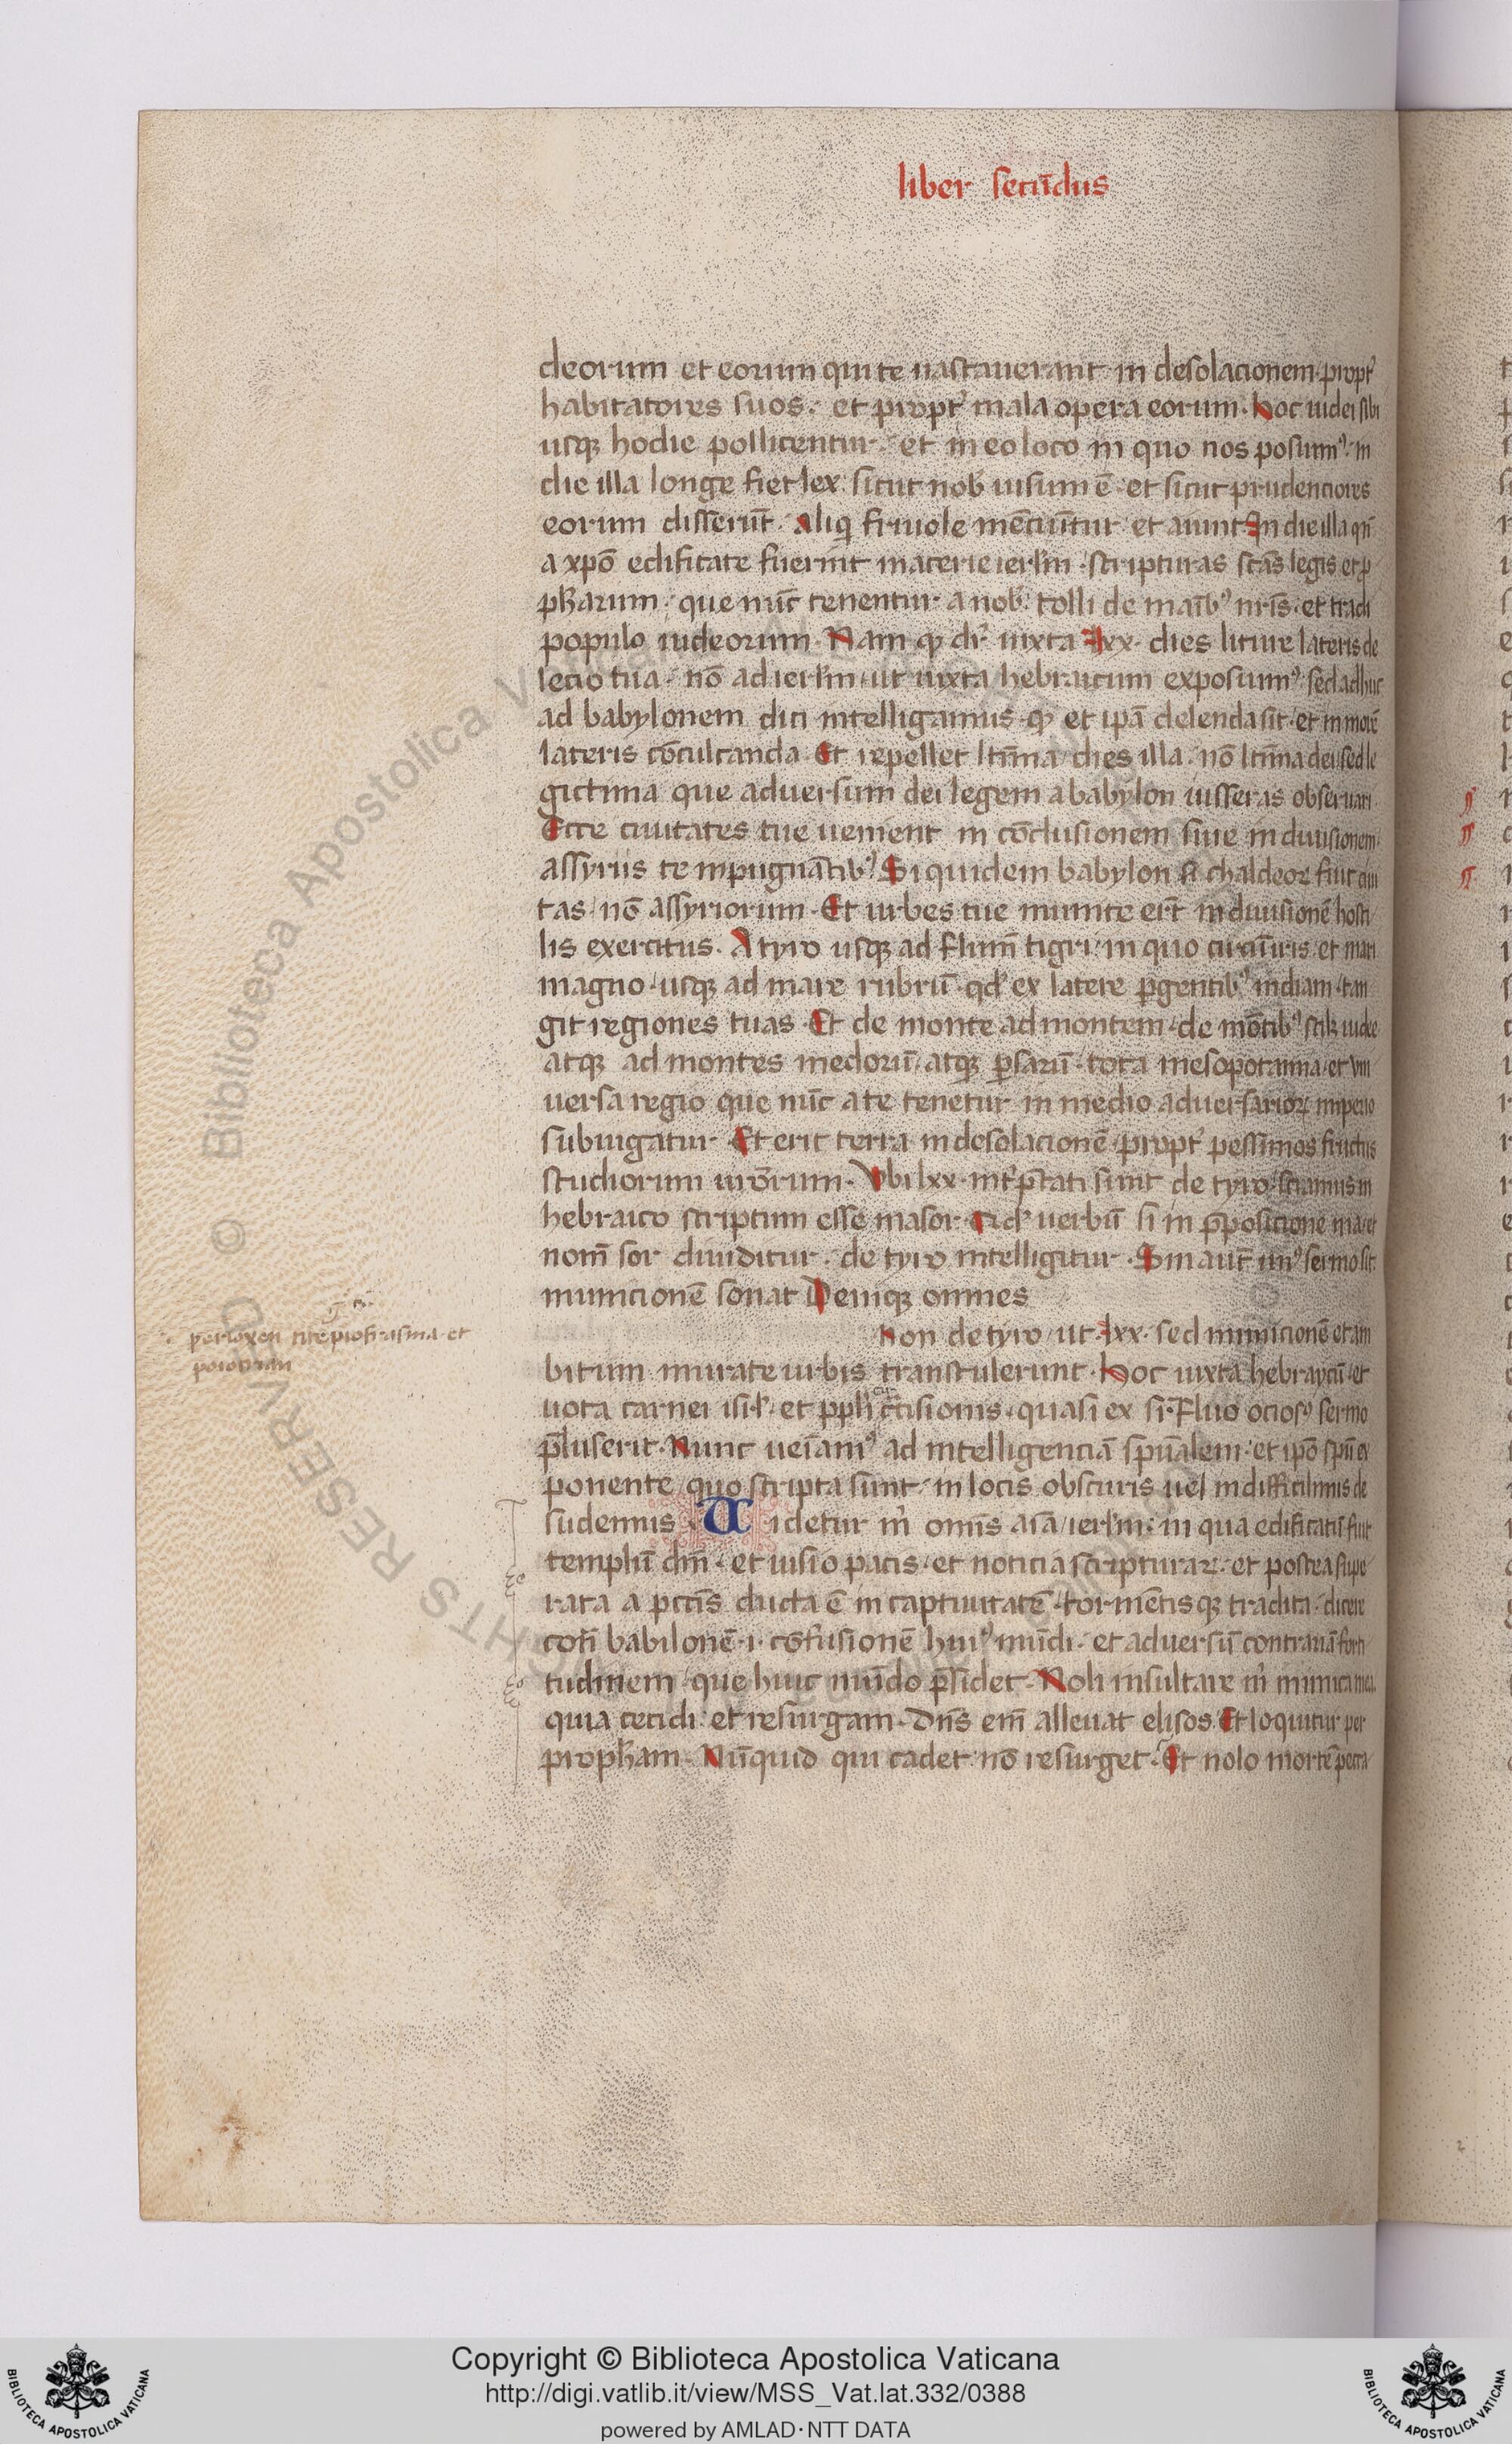 liber secūdus
deorum et eorum qui te uastauerant in desolacionem. propt᷑
habitatores suos. et propt᷑ mala opera eorum. hoc iudei sibi
usqꝫ hodie pollicentur. et in eo loco in quo nos posuimꝰ. in
die illa longe fiet lex. sicut nob̄ uisum ē. et sicut prudenciores
eorum disserūt. Aliq̇ friuole mēciūtur. et aiunt In die illa qn̄
a xpō edificate fuerint macerie ierl̄m. scripturas scās legis et ꝓ
ph̄arum. que nūc tenentur a nob̄. tolli de manibꝰ nr̄is. et tradi
populo iudeorum. Nam qꝫ dr̄. iuxta lxx. dies liture lateris de
lecio tua. nō ad ierl̄m. ut iuxta hebraicum exposuimꝰ. sed adhuc
ad babylonem dici intelligamus. qꝫ et ipā delenda sit. et in morē
lateris cōculcanda. Et repellet ltīma dies illa. nō ltīma dei. sed le
gictima que aduersum dei legem a babylon iusseras obseruari.
Ecce ciuitates tue uenient in cōclusionem siue in diuisionem.
assyriis te inpugnātibꝰ. Siquidem babylon chaldeoꝝ fuit ciui
tas. nō assyriorum. Et urbes tue munite er̄t in diuisionē hosti
lis exercitus. A tyro usqꝫ ad flumē tigri. in quo circūiris. et mari
magno. usqꝫ ad mare rubrū. qd̓ ex latere ꝑgentibꝰ indiam. tan
git regiones tuas. Et de monte ad montem. de mōtibꝰ scil̓ꝫ iudee
atqꝫ ad montes medorū. atqꝫ ꝑsarū. tota mesopotamia. et vni
uersa regio que nūc a te tenetur in medio aduersarioꝝ imperio
subiugatur. Et erit terra in desolacionē. propt᷑ pessimos fructus
studiorum uror̄um. Vbi lxx. int᷑p̄tati sunt de tyro. sciamus in
hebraico scriptum esse masor. qd̓ uerbū si in p̄posicione ma. et
nom̄ sor diuiditur. de tyro intelligitur. Sin aut̄ unꝰ sermo sit.
municionē sonat Deniqꝫ omnes
Non de tyro. ut. lxx. sed municionē et am
bitum murate urbis transtulerunt. hoc iuxta hebraycū. et
uota carnei isrl̓. et ppl̓i c̄cisionis. quasi ex si. fluo ociosꝰ sermo
p̄luserit. Nunc ueniamꝰ ad intelligenciā spūalem. et ipō spū ex
ponente quo scripta sunt. in locis obscuris uel indifficilimis de
sudemus. Uidetur m̓ omīs aīa. ierl̄m. in qua edificatū fuit
templū dn̄i. et uisio pacis. et noticia scripturaꝝ. et postea supe
rata a pccīs ducta ē in captiuitatē. tormētisqꝫ tradita. dicere
cont̄ babilonē. i. cōfusionē huiꝰ mūdi. et aduersū contrariā forti
tudinem. que huic mūdo p̄sidet. Noli insultare m̓ inimica mea.
quia cecidi. et resurgam. Dn̄s em̄ alleuat elisos. Et loquitur per
proph̄am. Nūquid qui cadet. nō resurget. Et nolo mortē pecca
Copyright © Biblioteca Apostolica Vaticana
http://digi.vatlib.it/view/MSS_Vat.lat.332/0388
powered by AMLAD·NTT DATA
BIBLIOTECA APOSTOLICA VATICANA
BIBLIOTECA APOSTOLICA VATICANA